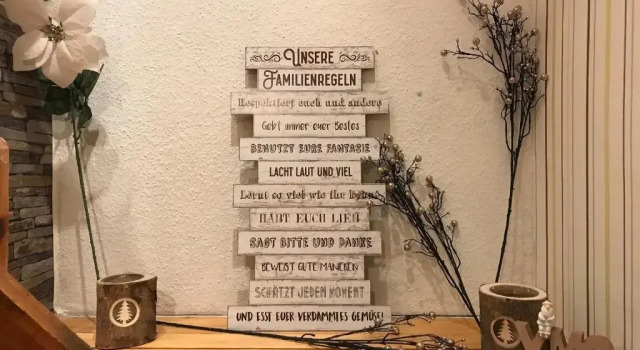 UNSERE
FAMILIENREGELN
Respektiert euch und andere
Gebt immer euer Bestes
BENUTZT EURE FANTASIE
LACHT LAUT UND VIEL
Lernt so viel wie ihr könnt
HABT EUCH LIEB
SAGT BITTE UND DANKE
BEWEIST GUTE MANIEREN
SCHÄTZT JEDEN MOMENT
UND ESST EUER VERDAMMTES GEMÜSE!